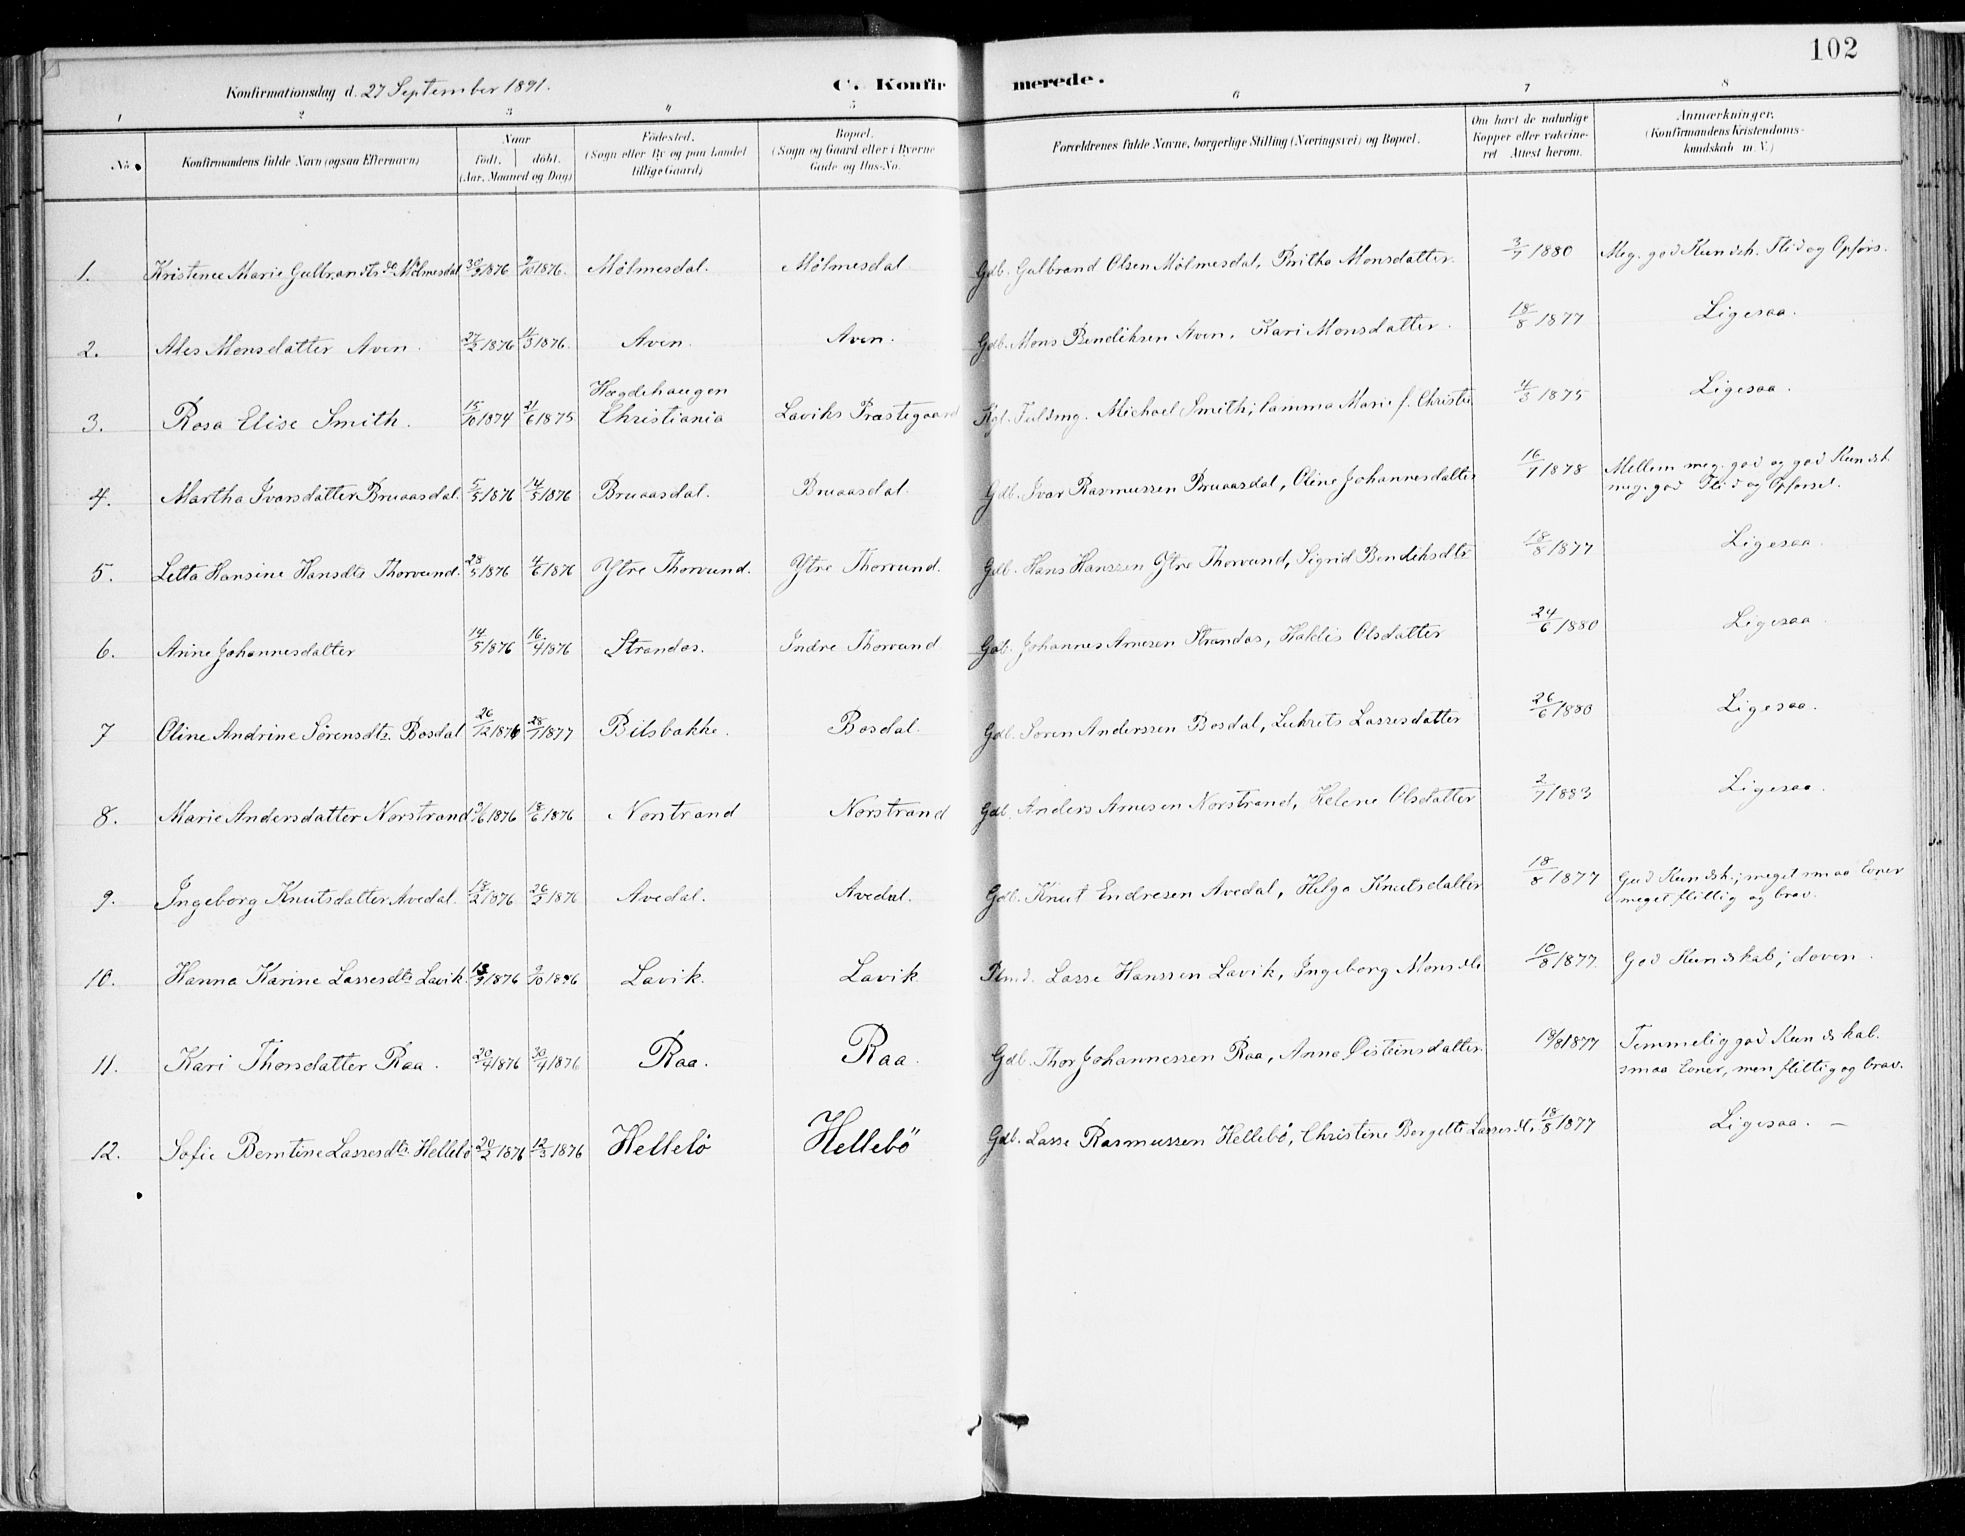 102
Konfirmationsdag d. 27 September 1891.
C. Konfirmerede.
1 2 3 4 5 6 7 8
No.
Konfirmandens fulde Navn (ogsaa Efternavn)
Naar
født. døbt.
(Aar, Maaned og Dag)
Fødested.
(Sogn eller By og paa Landet
tillige Gaard)
Bopæl.
(Sogn og Gaard eller i Byerne
Gade og Hus-No.
Forældrenes fulde Navne, borgerlige Stilling (Næringsvei) og Bopæl.
Om havt de naturlige
Kopper eller vakcine-
ret Attest herom.
Anmærkninger.
(Konfirmandens Kristendoms-
kundskab m. V.)
1. Kristence Marie Gulbrandsdtr Mølmesdal 30/9 1876 9/10 1876. Mølmesdal. Mølmesdal Gdb. Gulbrand Olsen Mølmesdal, Britha Monsdatter. 3/7 1880 Meg. god Kundsk. Flid og Opførs.
2. Ales Monsdatter Aven. 27/2 1876 4/3 1876. Aven. Aven. Gdb. Mons Bendiksen Aven, Kari Monsdatter. 18/8 1877 Ligesaa.
Hægdehaugen
3. Rosa Elise Smith. 15/10 1874 21/6 1875 Christiania Laviks Præstegaard Michael Smith; Marie f. 4/3 1875 Ligesaa.
4. Martha Ivarsdatter Bruaasdal. 5/5 1876 14/5 1876 Bruaasdal. Bruaasdal. Gdb. Ivar Rasmussen Bruaasdal, Oline Johannesdatter 16/7 1878 Mellem meg. god og god Kundsk.
meg. god Flid og Opførsel.
5. Letta Hansine Hansdtr Thorvund. 28/5 1876 4/6 1876 Ytre Thorvund. Ytre Thorvund. Gdb. Hans Hanssen Ytre Thorvund, Sigrid Bendiksdtr 18/8 1877 Ligesaa.
6. Anine Johannesdatter 14/5 1876 16/4 1876 Strandos. Indre Thorvund Gdb. Johannes Arnesen Strandos, Haldis Olsdatter 24/6 1880 Ligesaa.
7 Oline Andrine Sørensdtr. Bosdal 26/12 1876 28/1 1877 Bilsbakke. Bosdal. Gdb. Søren Anderssen Bosdal, Lukrets Lassesdatter 26/6 1880 Ligesaa.
8. Marie Andersdatter Norstrand 1876 18/6 1876 Norstrand Norstrand Gdb. Anders Arnesen Norstrand, Helene Olsdatter 2/7 1883 Ligesaa.
9. Ingeborg Knutsdatter Avedal. 18/2 1876 26/3 1876 Avedal. Avedal. Gdb. Knut Endresen Avedal, Helga Knutsdatter 18/8 1877 God Kundsk.; meget smaa Evner
meget flittig og brav.
10. Hanna Karine Lassesdtr Lavik. 18/9 1876 9/10 1876 Lavik. Lavik. Plmd. Lasse Hanssen Lavik, Ingeborg Monsdtr 10/8 1877 God Kundskab; doven.
11. Kari Thorsdatter Raa. 20/4 1876 30/4 1876 Raa. Raa. Gdb. Thor Johannessen Raa, Anna Øisteinsdatter. 18/8 1877 Temmelig god Kundskab.
smaa Evner, men flittig og brav.
12. Sofie Berntine Lassesdtr Hellebø 20/2 1876 12/3 1876 Hellebø Hellebø Gdb. Lasse Rasmussen Hellebø, Christine Bergette Lassesdtr 18/8 1877 Ligesaa. —